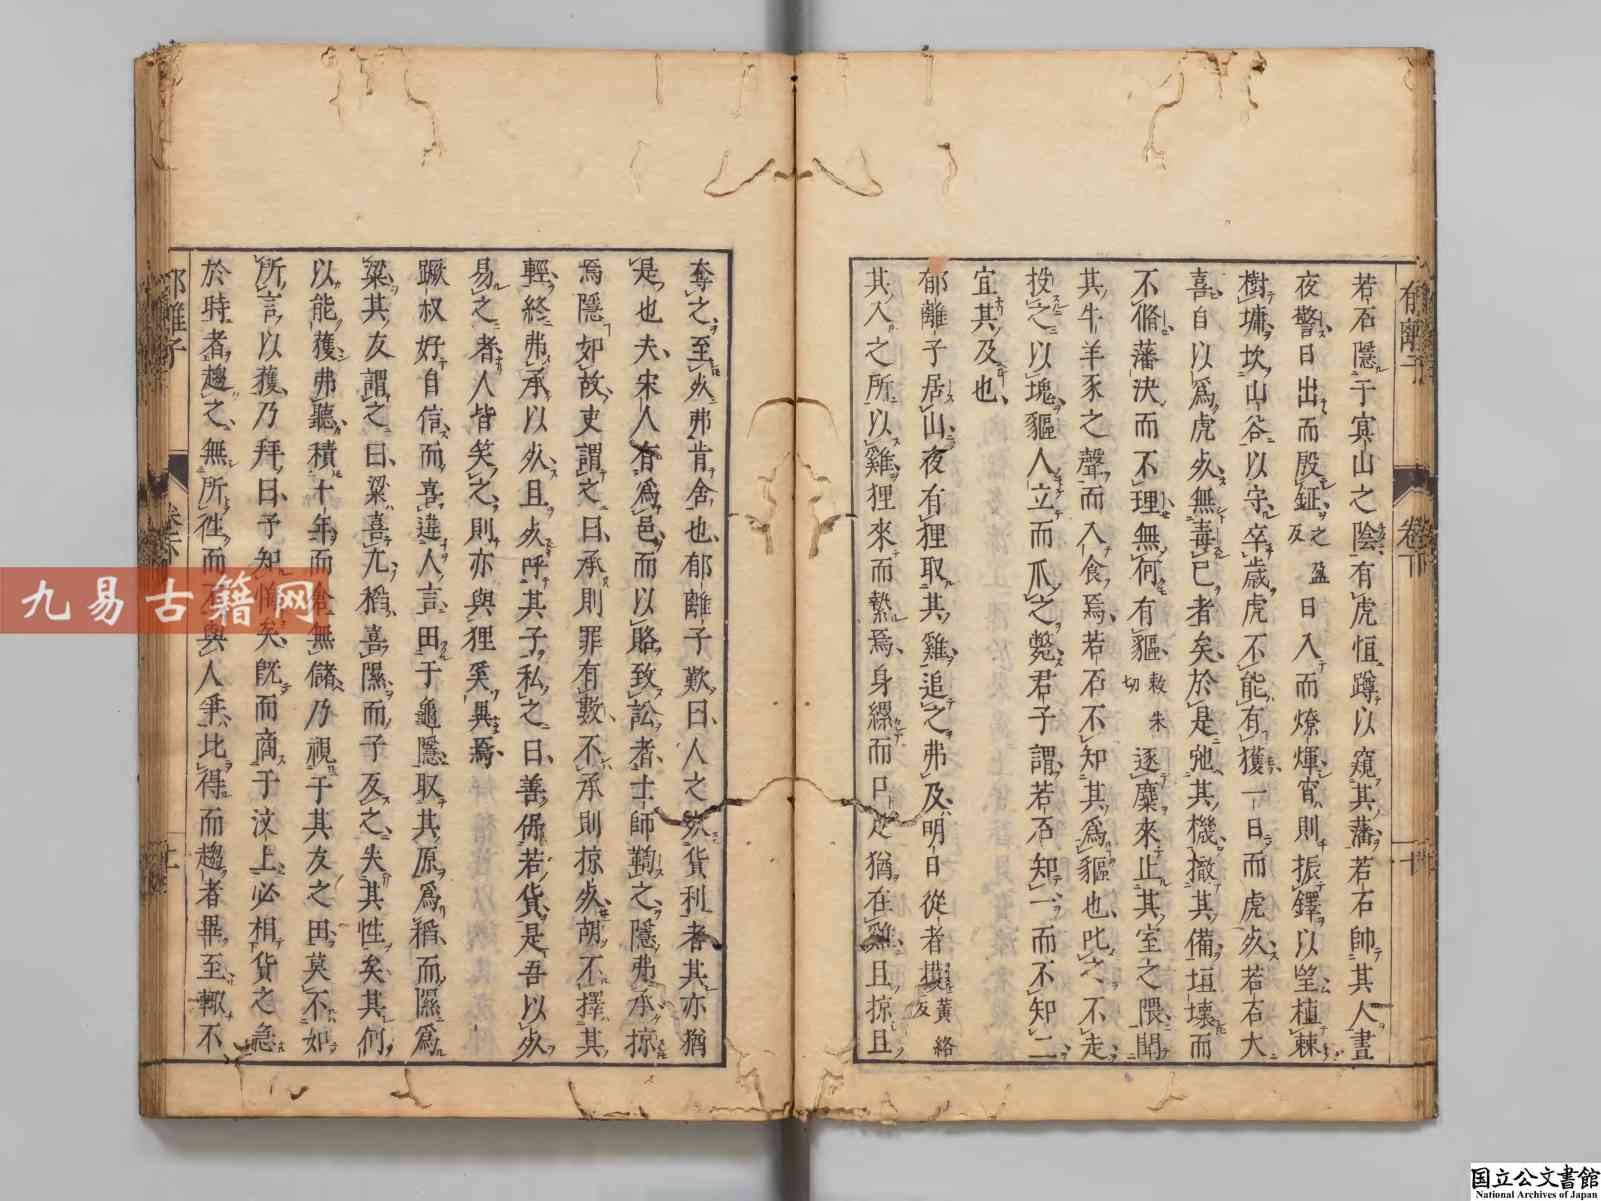 郁離子
卷下
十
若石隱于寘山之陰有虎恒蹲以窺其藩若石帥其人晝
夜警日出而殷鉦之盈反日入而燎煇宵則振鐸以望植棘
樹墉坎山谷以守卒歲虎不能有獲一日而虎死若石大
喜自以爲虎死無毒己者矣於是弛其機撤其備垣壞而
不脩藩決而不理無何有貙敕朱切逐麋來止其室之隈聞
其牛羊豕之聲而入食焉若石不知其爲貙也叱之不走
投之以塊貙人立而爪之斃君子謂若石知一而不知二
宜其及也
郁離子居山夜有狸取其雞追之弗及明日從者擭黃絡反
其入之所以雞狸來而縶焉身縲而口足猶在雞且掠且
奪之至死弗肯舍也郁離子歎曰人之死貨利者其亦猶
是也夫宋人有爲邑而以賂致訟者士師鞫之隱弗承掠
焉隱如故吏謂之曰承則罪有數不承則掠死胡不擇其
輕終弗承以死且死呼其子私之曰善保若貨是吾以死
易之者人皆笑之則亦與狸奚異焉
蹶叔好自信而喜違人言田于龜隱取其原爲稻而隰爲
粱其友謂之曰粱喜亢稻喜隰而子反之失其性矣其何
以能獲弗聽積十年而倉無儲乃視于其友之田莫不如
所言以獲乃拜曰予知悔矣旣而商于汶上必相貨之急
於時者趨之無所往而不與人爭比得而趨者畢至輙不
九易古籍网
国立公文書館
National Archives of Japan